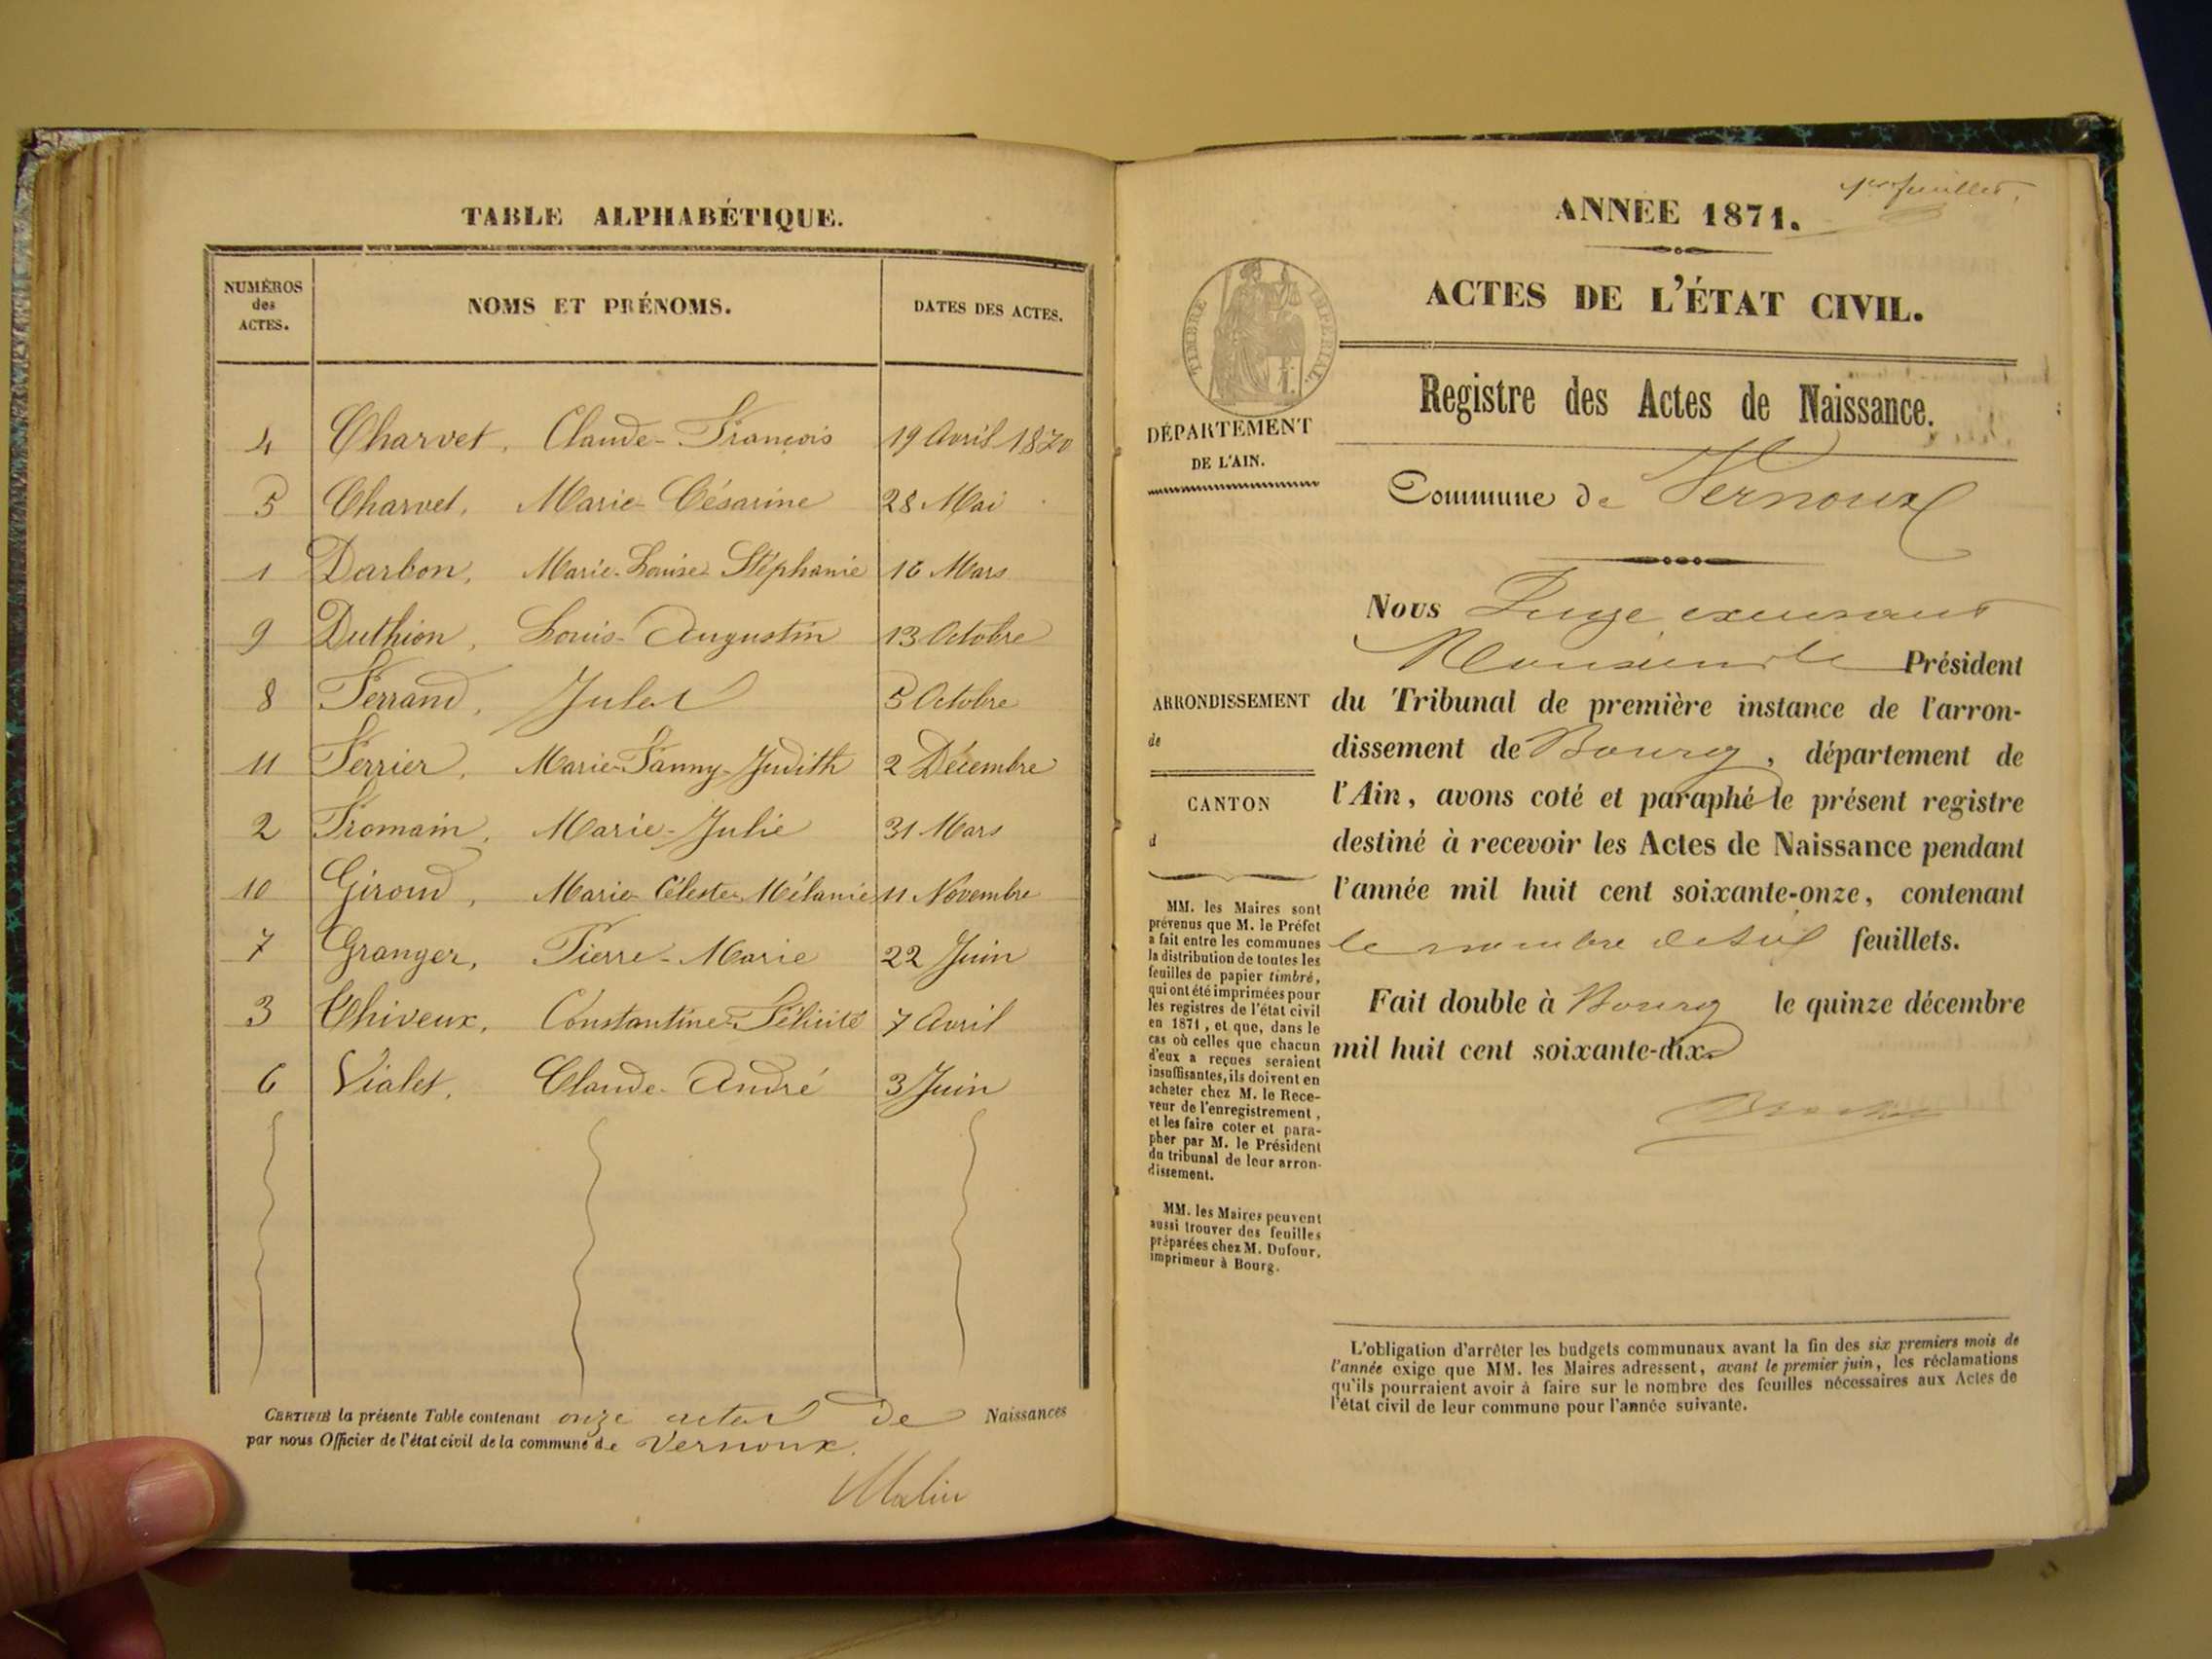 TABLE ALPHABÉTIQUE.
NUMÉROS des ACTES. NOMS ET PRÉNOMS. DATES DES ACTES.
4 Charvet, Claude-François 19 Avril 1870
5 Charvet, Marie-Césarine 28 Mai
1 Darbon, Marie-Louise-Stéphanie 16 Mars
9 Duthion, Louis-Augustin 13 Octobre
8 Ferrand, Jules 5 Octobre
11 Ferrier, Marie-Fanny-Judith 2 Décembre
2 Fromain, Marie-Julie 31 Mars
10 Giroud, Marie Céleste Mélanie 11 Novembre
7 Granger, Pierre-Marie 22 Juin
3 Thiveux, Constantine-Félicité 7 Avril
6 Vialet, Claude-André 3 Juin
CERTIFIÉ la présente Table contenant onze actes de Naissances
par nous Officier de l'état civil de la commune de Vernoux.
Malin
1er feuillet.
ANNÉE 1871.
ACTES DE L'ÉTAT CIVIL.
TIMBRE IMPÉRIAL.
DÉPARTEMENT
DE L'AIN.
Registre des Actes de Naissance.
Commune de Vernoux
ARRONDISSEMENT
de
CANTON
d
MM. les Maires sont
prévenus que M. le Préfet
a fait entre les communes
la distribution de toutes les
feuilles de papier timbré,
qui ont été imprimées pour
les registres de l'état civil
en 1871, et que, dans le
cas où celles que chacun
d'eux a reçues seraient
insuffisantes, ils doivent en
acheter chez M. le Rece-
veur de l'enregistrement,
et les faire coter et para-
pher par M. le Président
du tribunal de leur arron-
dissement.
MM. les Maires peuvent
aussi trouver des feuilles
préparées chez M. Dufour,
imprimeur à Bourg.
Nous Juge
Monsieur le Président
du Tribunal de première instance de l'arron-
dissement de Bourg, département de
l'Ain, avons coté et paraphé le présent registre
destiné à recevoir les Actes de Naissance pendant
l'année mil huit cent soixante-onze, contenant
le nombre de six feuillets.
Fait double à Bourg le quinze décembre
mil huit cent soixante-dix.
L'obligation d'arrêter les budgets communaux avant la fin des six premiers mois de
l'année exige que MM. les Maires adressent, avant le premier juin, les réclamations
qu'ils pourraient avoir à faire sur le nombre des feuilles nécessaires aux Actes de
l'état civil de leur commune pour l'année suivante.